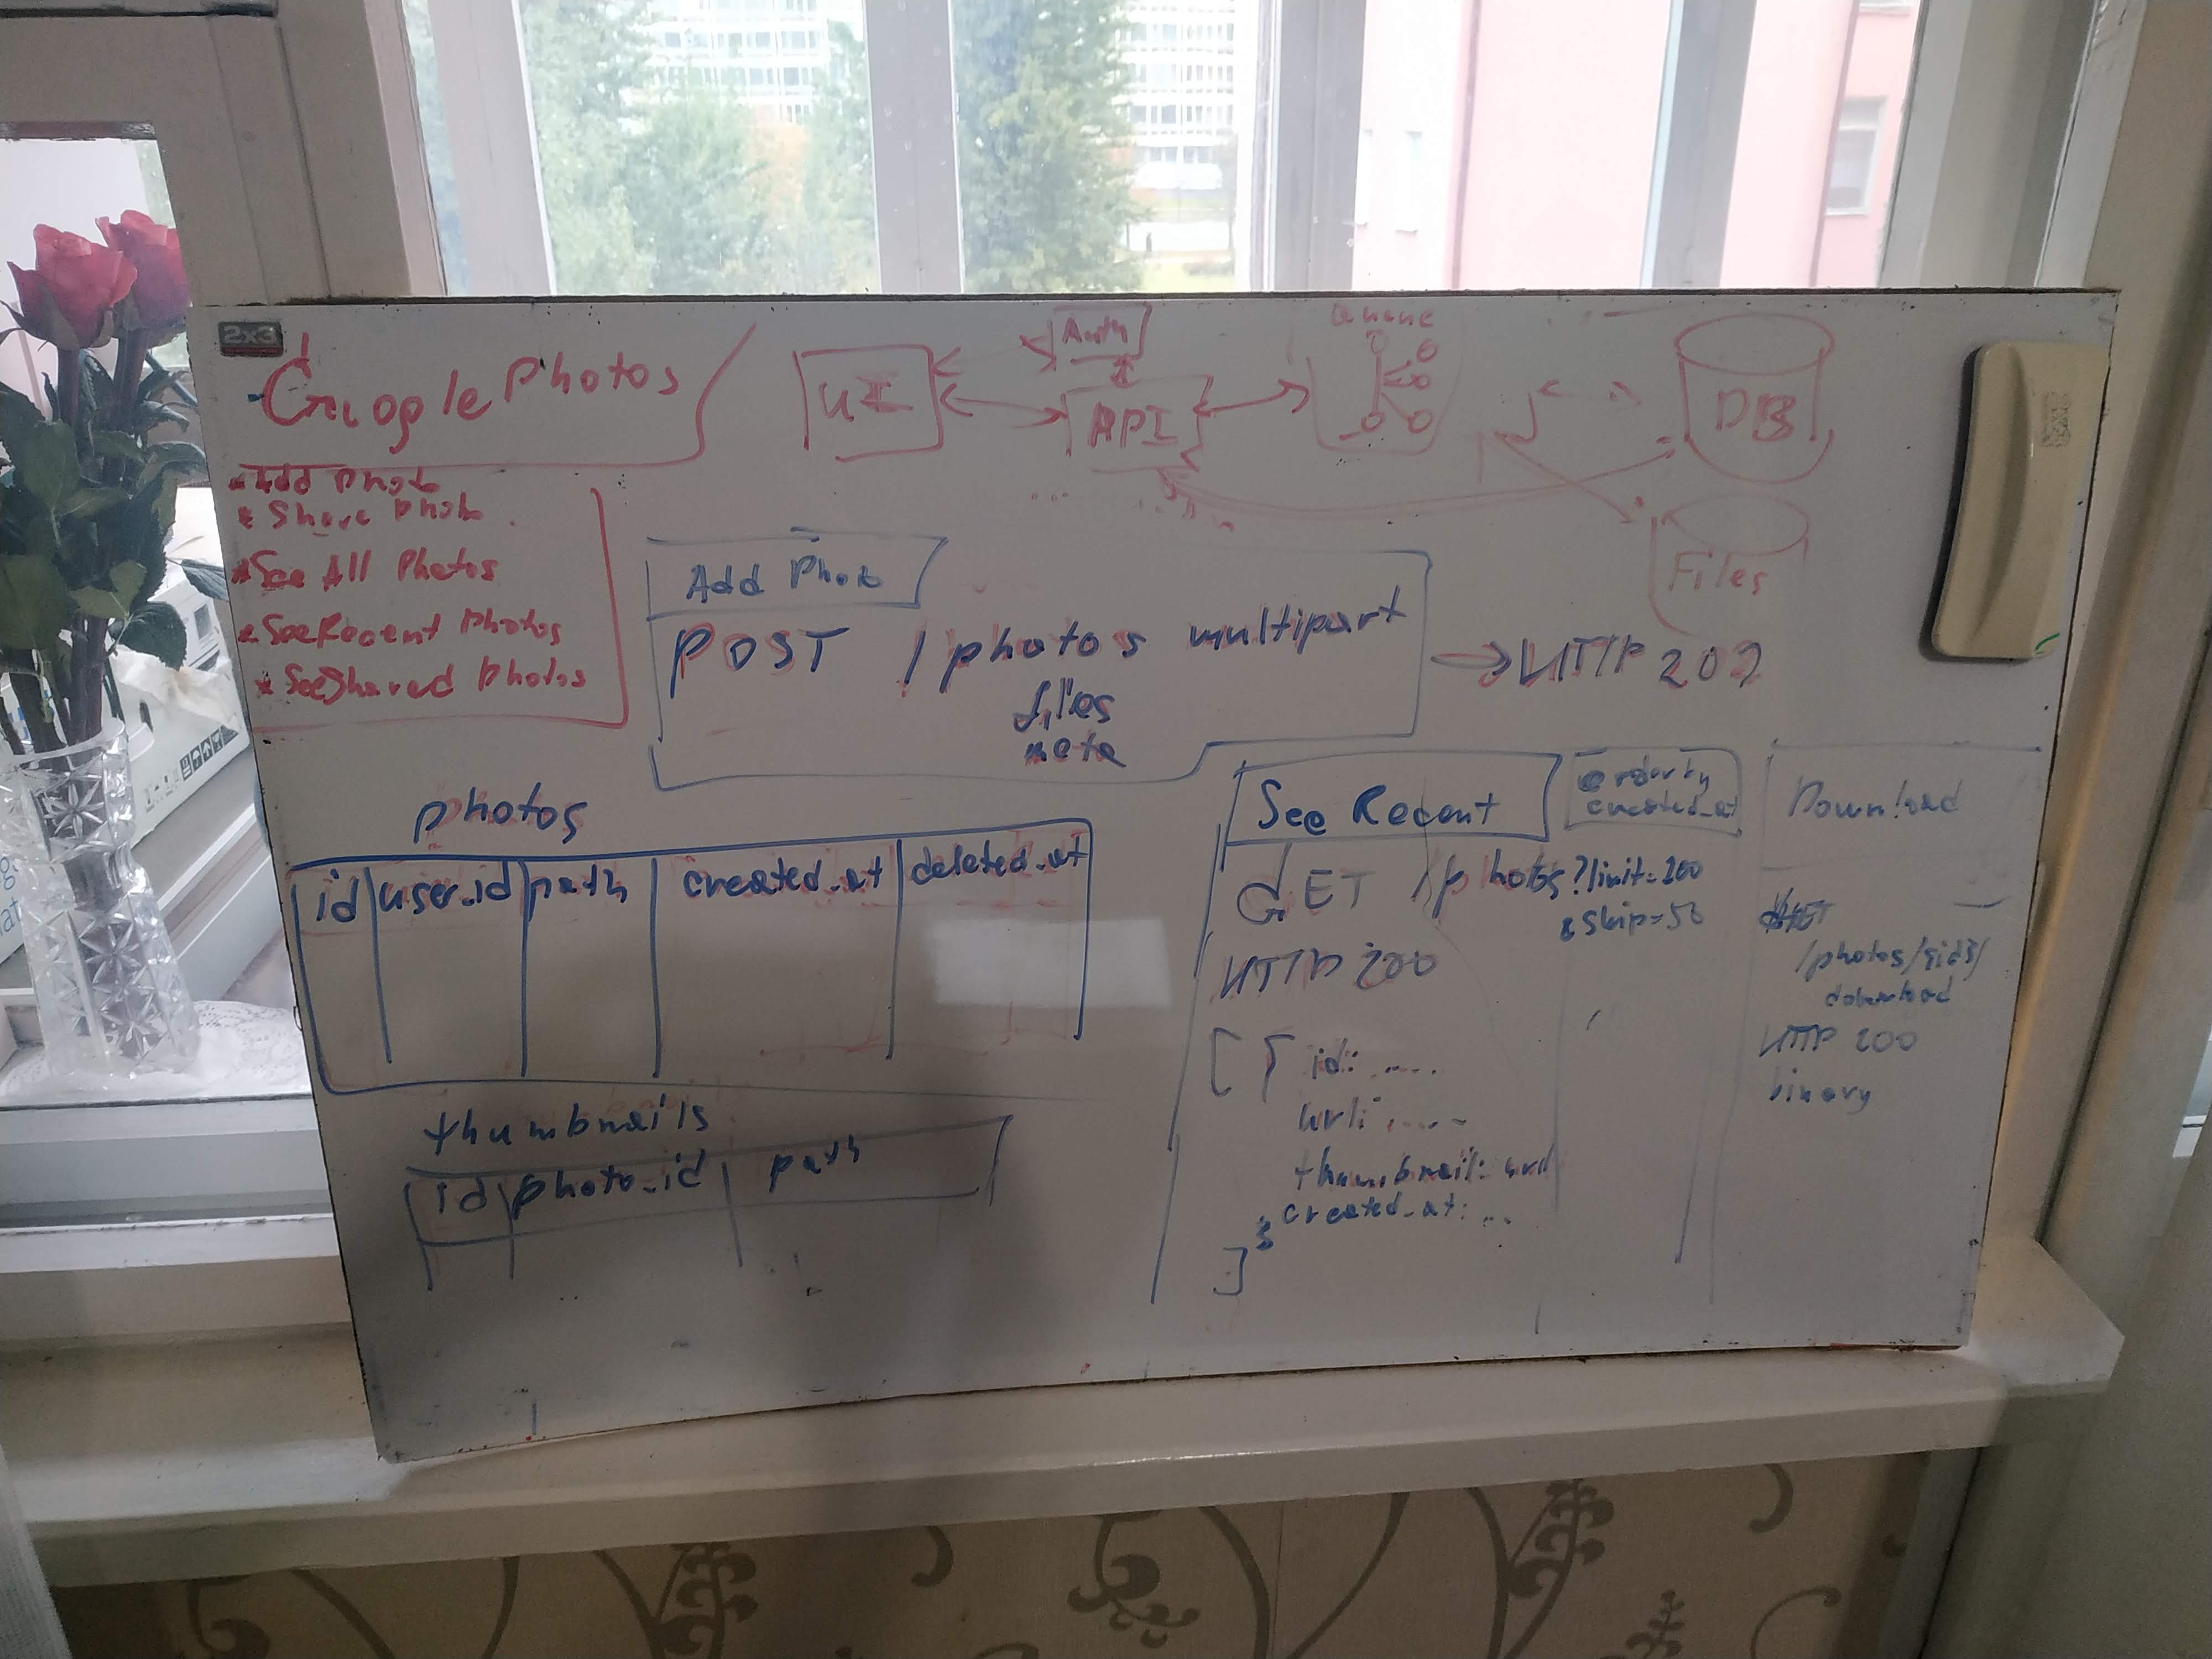 2x3
Google Photos
UI
Auth
API
Queue
DB
Files
* Add Photo
* Share Photo
* See All Photos
* See Recent Photos
* See Shared Photos
Add Photo
POST /photos multipart
files
meta
HTTP 202
photos
id user_id path created_at deleted_at
thumbnails
id photo_id path
See Recent
order by
created_at
GET /photos?limit=100
&skip=50
HTTP 200
[ { id: ....
url: ....
thumbnail: url
created_at: ..
}
]
Download
GET
/photos/{id}/
download
HTTP 200
binary